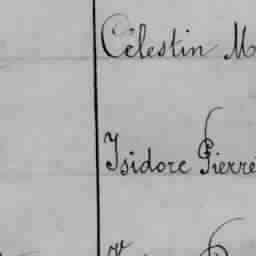 Célestin M
Isidore Pierre